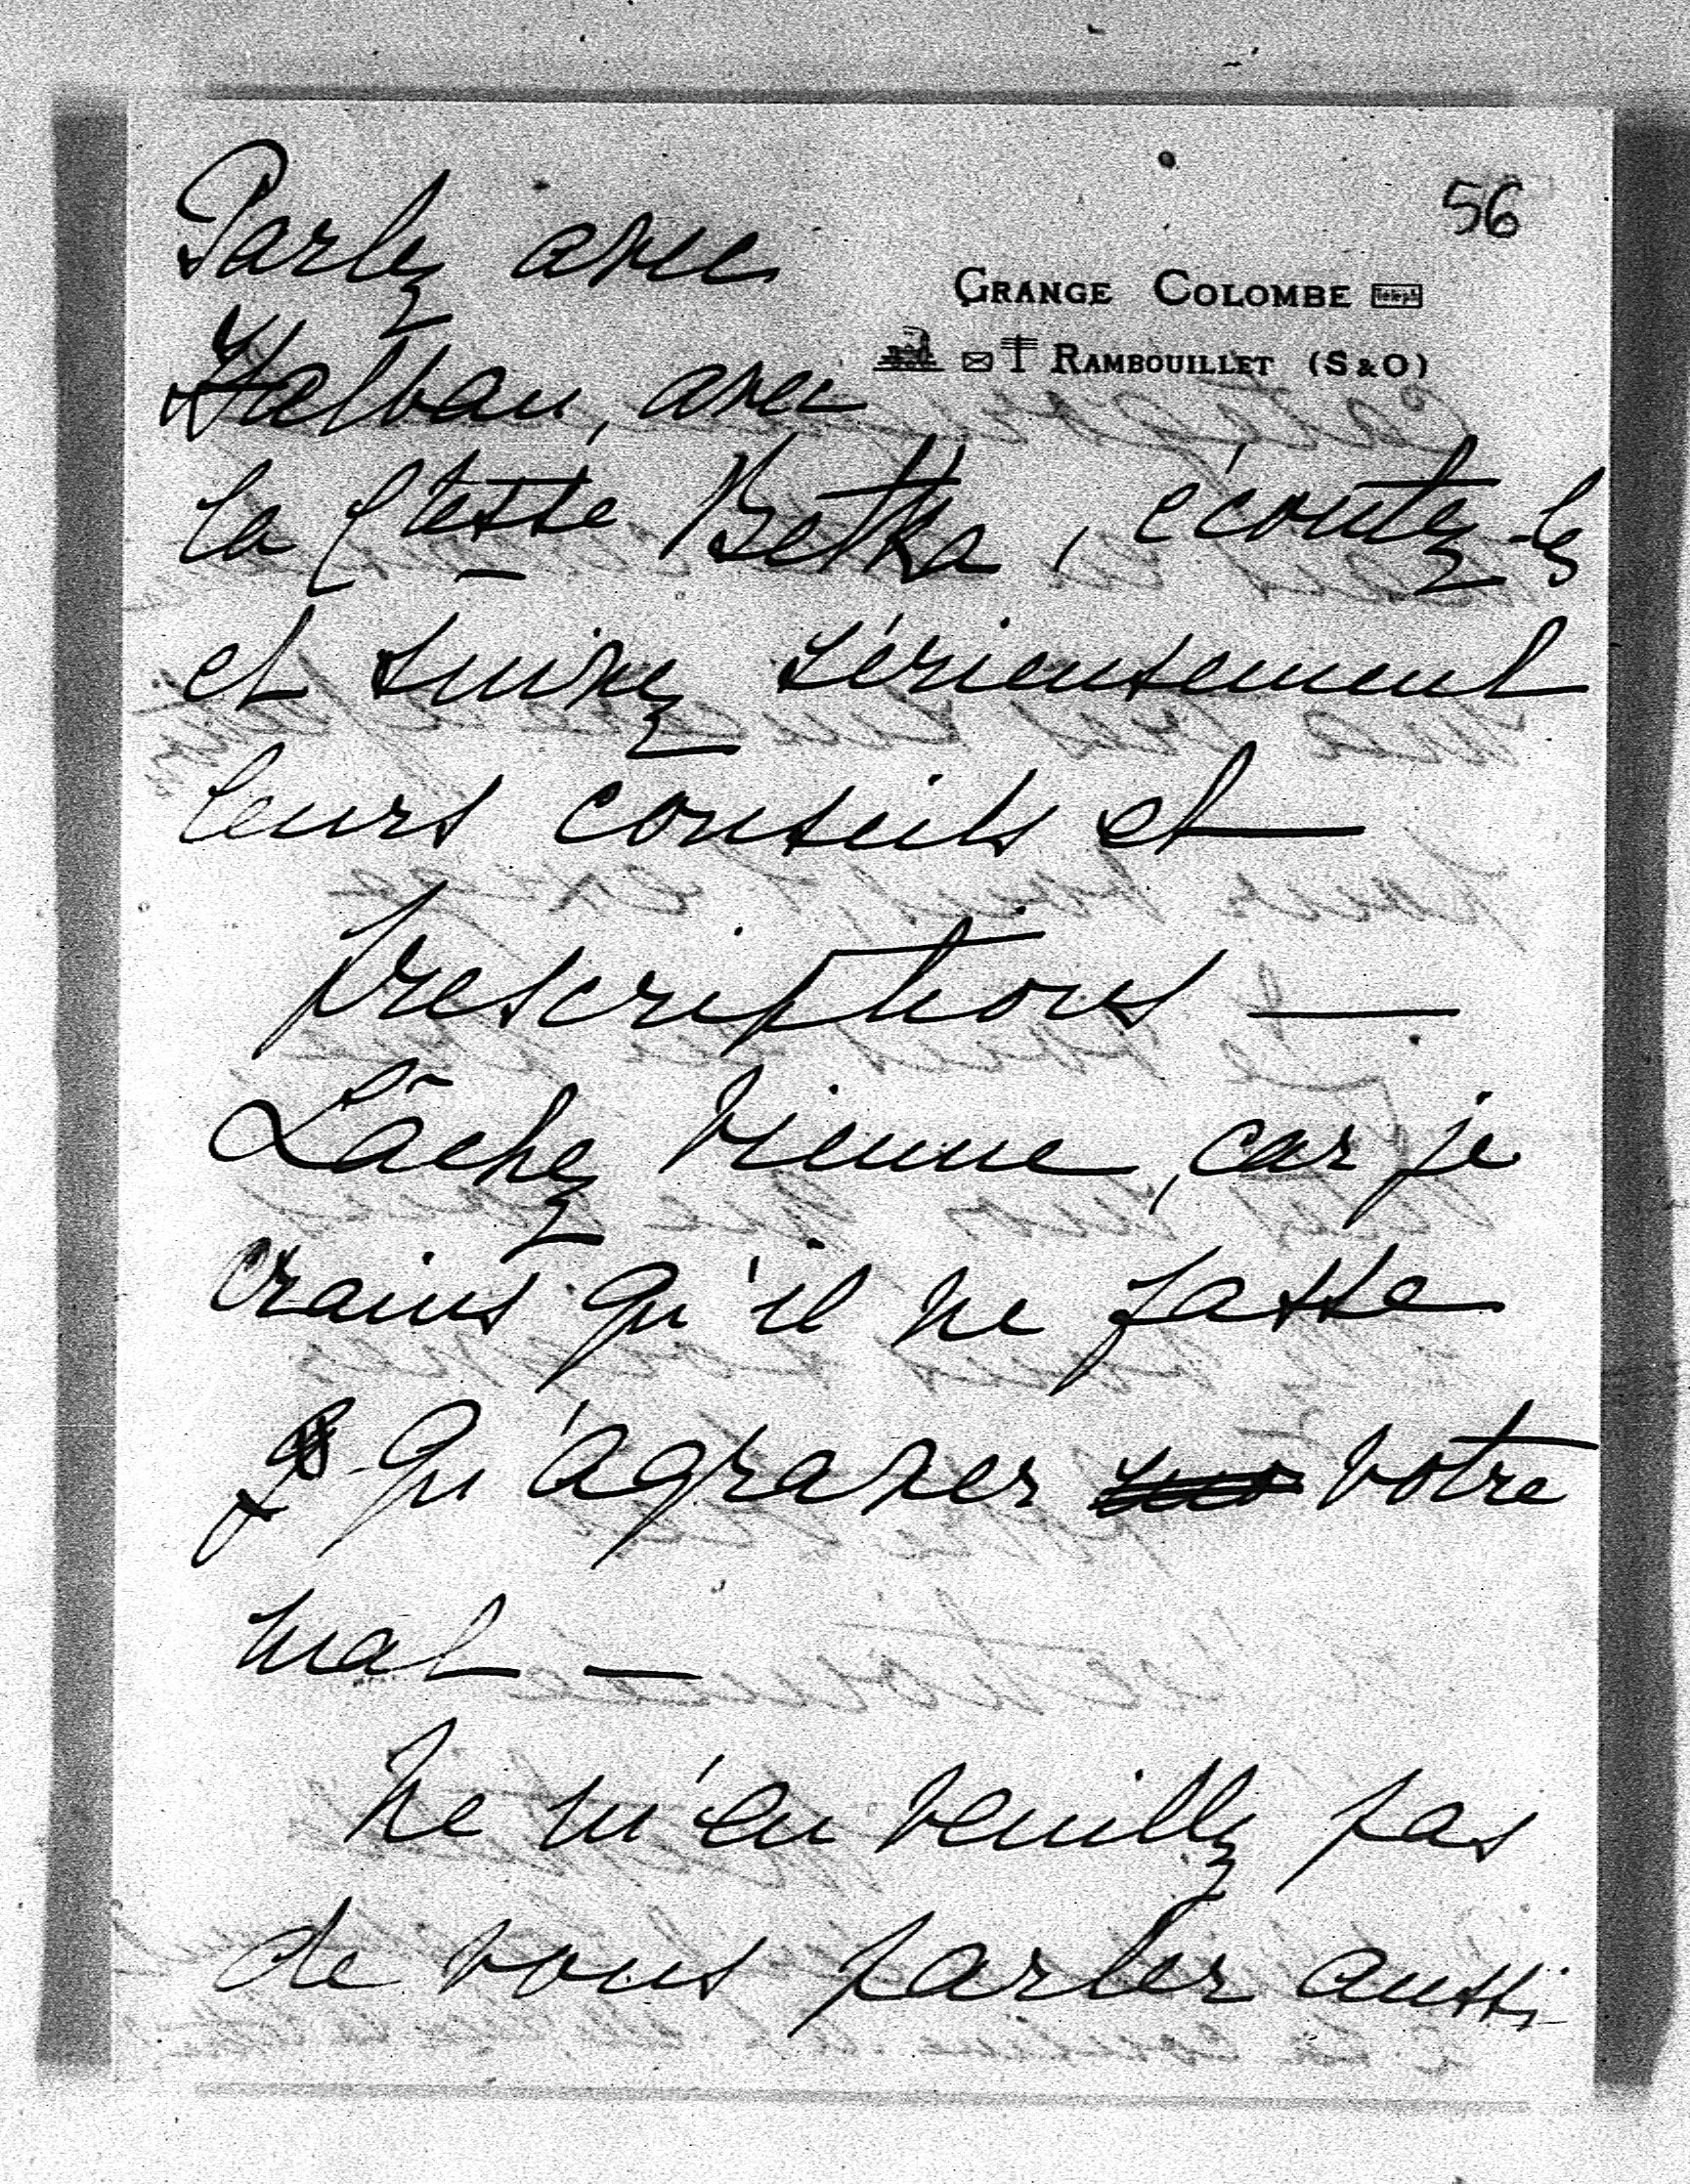 56
Parlez avec
GRANGE COLOMBE Téleph
RAMBOUILLET (S & O)
Halban, avec
la Ctesse Betka, écoutez-les
et suivez sérieusement
leurs conseils et —
prescriptions —
Lâchez Vienne, car je
crains qu'il ne fasse
qu'agraver votre
mal —
Ne m'en veuillez pas
de vous parler aussi